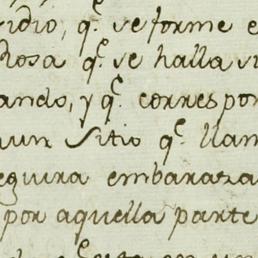 sidio, q.^e se forme e
diosa q.^e se halla si
ando, y q.^e correspon
un Sitio q.^e llam
eguira embaraza
por aquella parte